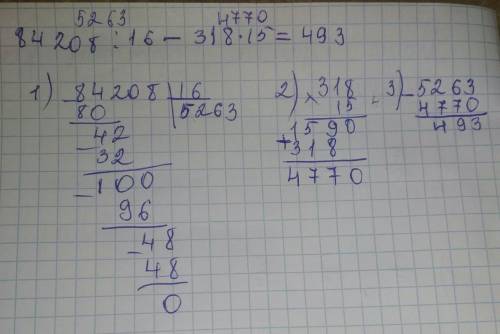 5263 4770
84208 : 16 - 318 · 15 = 493
1) 84208 | 16 2) 318 3) 5263
- 80 5263 × 15 - 4770
- 42 1590 493
32 + 318
- 100 4770
96
- 48
48
0